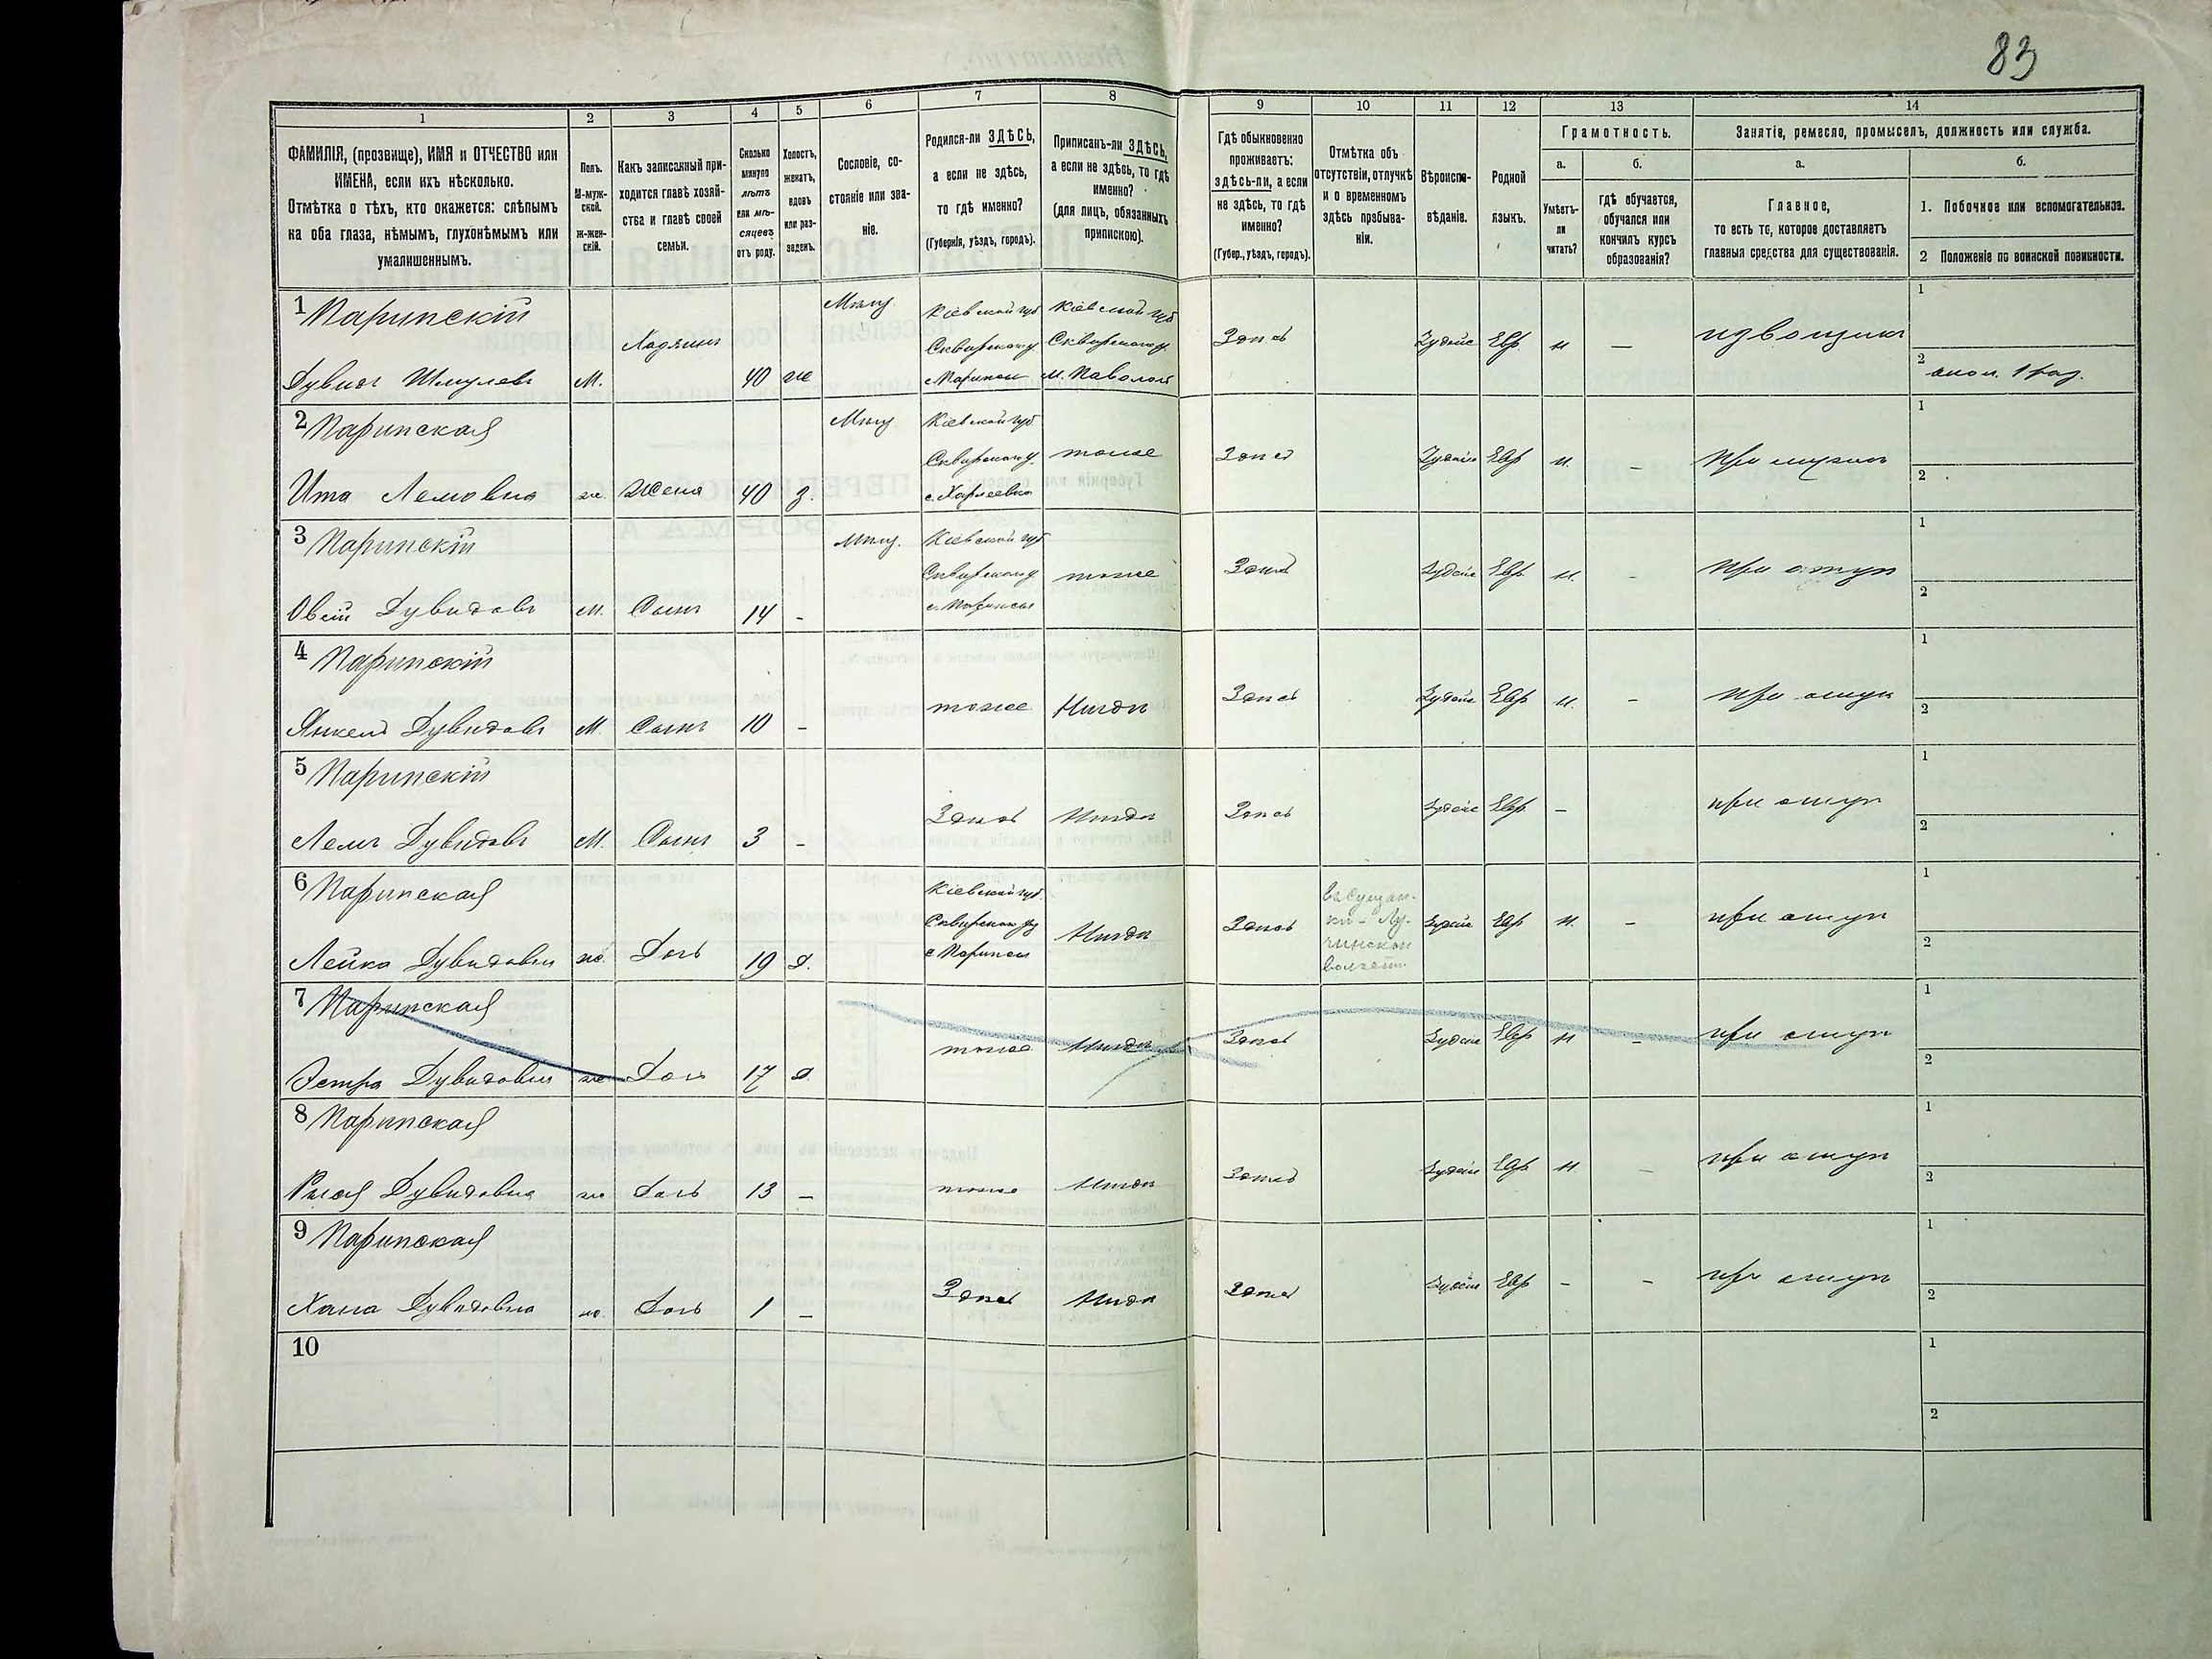 83
1
2
3
4
5
6
7
8
9
10
11
12
13
14
ФАМИЛІЯ, (прозвище), ИМЯ и ОТЧЕСТВО или
ИМЕНА, если ихъ нѣсколько.
Отмѣтка о тѣхъ, кто окажется: слѣпымъ
на оба глаза, нѣмымъ, глухонѣмымъ или
умалишеннымъ.
Полъ.
М-муж-
ской.
ж-жен-
скій.
Какъ записанный при-
ходится главѣ хозяй-
ства и главѣ своей
семьи.
Сколько
минуло
лѣтъ
или мѣ-
сяцевъ
отъ роду.
Холостъ,
женатъ,
вдовъ
или раз-
веденъ.
Сословіе, со-
стояніе или зва-
ніе.
Родился-ли ЗДѢСЬ,
а если не здѣсь,
то гдѣ именно?
(Губернія, уѣздъ, городъ).
Приписанъ-ли ЗДѢСЬ,
а если не здѣсь, то гдѣ
именно?
(для лицъ, обязанныхъ
припискою).
Гдѣ обыкновенно
проживаетъ:
здѣсь-ли, а если
не здѣсь, то гдѣ
именно?
(Губер., уѣздъ, городъ).
Отмѣтка объ
отсутствіи, отлучкѣ
и о временномъ
здѣсь пребыва-
ніи.
Вѣроиспо-
вѣданіе.
Родной
языкъ.
Грамотность.
а.
б.
Умѣетъ-
ли
читать?
гдѣ обучается,
обучался или
кончилъ курсъ
образованія?
Занятіе, ремесло, промыселъ, должность или служба.
а.
б.
Главное,
то есть то, которое доставляетъ
главныя средства для существованія.
1. Побочное или вспомогательное.
2 Положеніе по воинской повинности.
1 Паринскій
Дувидъ Шмулевъ
М.
Хозяинъ
40
же
Мѣщ.
Кіевской губ
Сквирскаго у.
с. Паринсы
Кіевской губ
Сквирскаго у.
м. Паволочь
Здѣсь
Іудейс
Евр.
н
—
извощикъ
1
2
2 Паринская
Ита Лемовна
же.
Жена
40
з.
Мѣщ.
Кіевской губ
Сквирскаго у.
тоже
Здѣсь
Іудейс
Евр
н.
-
При мужѣ
1
2
3 Паринскій
Дувидовъ
М.
Сынъ
14
-
Мѣщ.
Кіевской губ
Сквирскаго у.
тоже
Здѣсь
Іудейс
Евр.
н.
-
При отцѣ
1
2
4 Паринскій
Янкель Дувидовъ
М.
Сынъ
10
-
тоже
Нигдѣ
Здѣсь
Іудейс
Евр
н.
-
при отцѣ
1
2
5 Паринскій
Лемъ Дувидовъ
М.
Сынъ
3
-
Здѣсь
Нигдѣ
Здѣсь
Іудейс
Евр.
-
при отцѣ
1
2
6 Паринская
Лейка Дувидовна
же.
Дочь
19
д.
Кіевской губ.
Сквирскаго у
Нигдѣ
Здѣсь
Іудейс
Евр
н.
-
при отцѣ
1
2
7 Паринская
Эстра Дувидовна
же
Дочь
17
д
тоже
Нигдѣ
Здѣсь
Іудейс
Евр
н
-
при отцѣ
1
2
8 Паринская
Дувидовна
же
Дочь
13
-
тоже
Нигдѣ
Здѣсь
Іудейс
Евр
н
-
при отцѣ
1
2
9 Паринская
Хана Дувидовна
же.
Дочь
1
-
Здѣсь
Нигдѣ
Здѣсь
Іудейс
Евр
-
-
при отцѣ
1
2
10
1
2